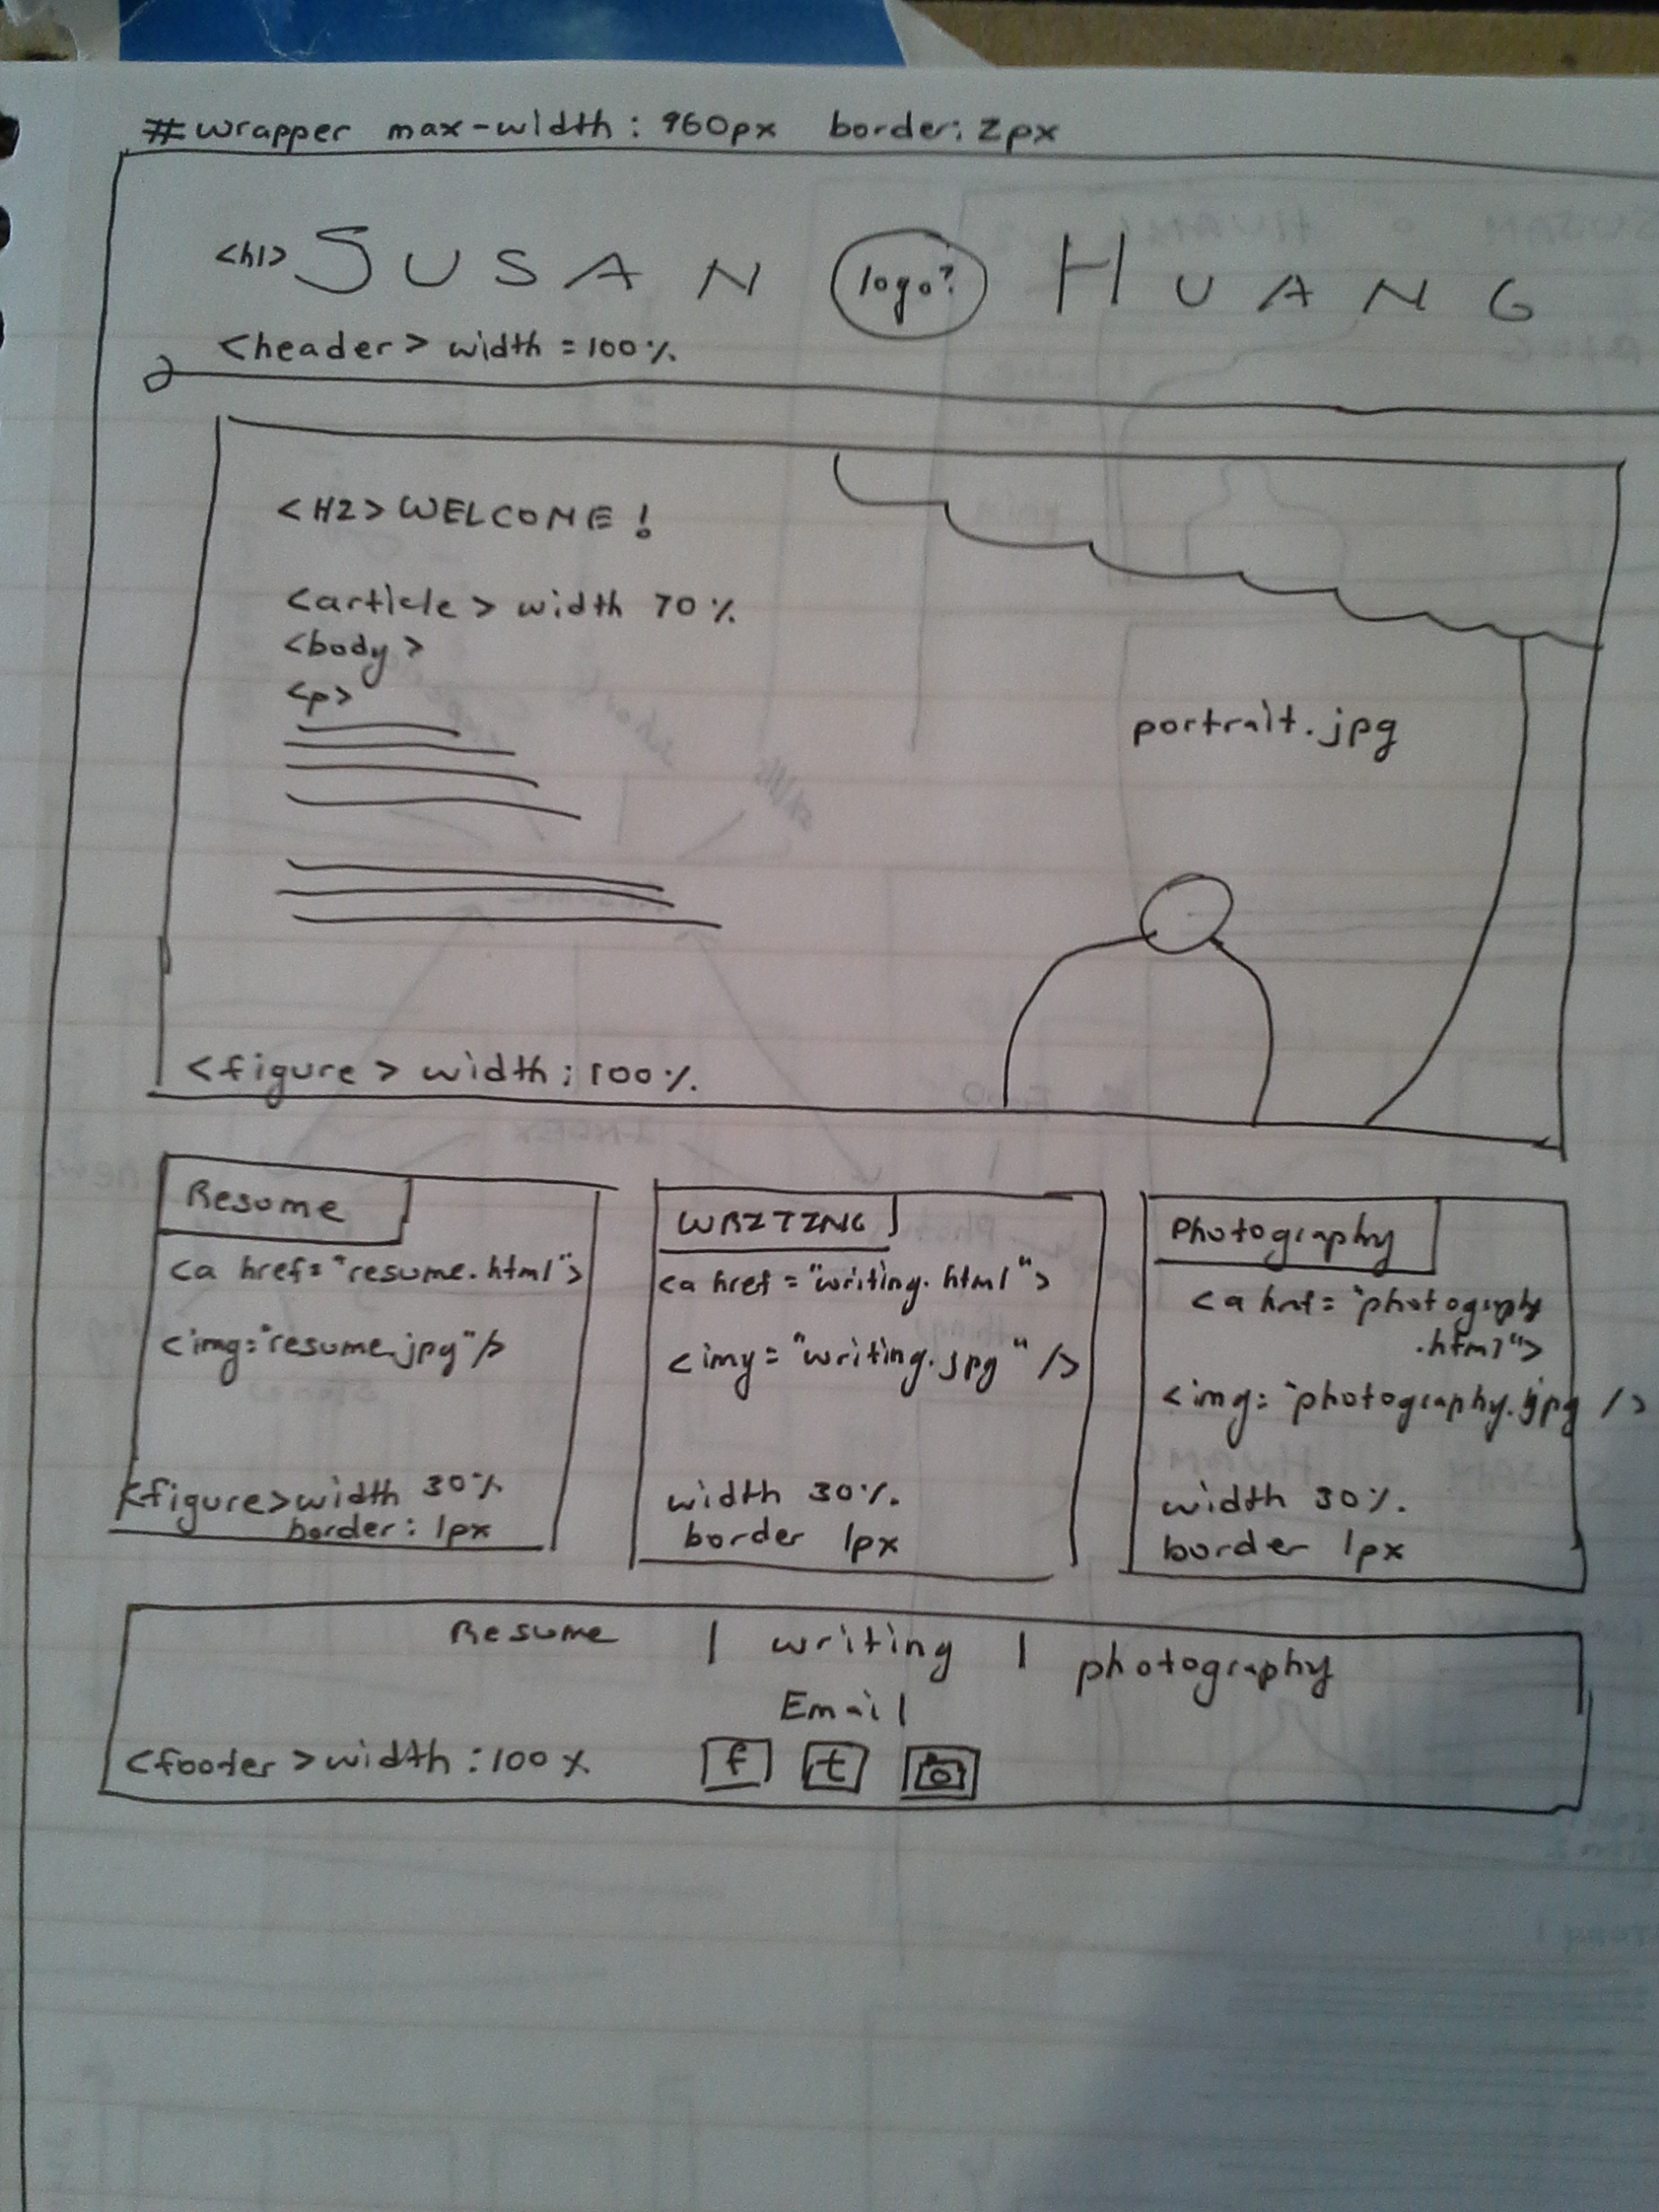 #wrapper max-width: 960px border: 2px
<h1> SUSAN logo? HUANG
<header> width = 100%
<H2> WELCOME!
<article> width 70%
<body>
<p>
portrait.jpg
<figure> width: 100%
Resume
<a href="resume.html">
<img="resume.jpg"/>
<figure> width 30%
border: 1px
WRITING
<a href="writing.html">
<img="writing.jpg" />
width 30%
border 1px
Photography
<a href="photography
.html">
<img="photography.jpg />
width 30%
border 1px
Resume | writing | photography
Email
<footer> width: 100% f t